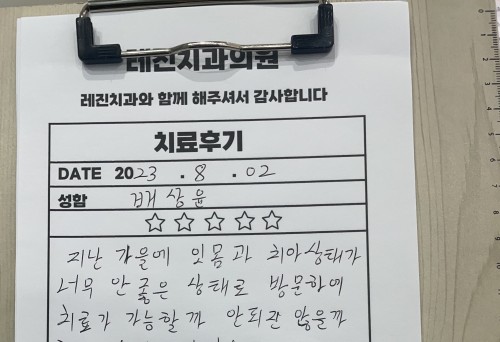 레진치과의원
레진치과와 함께 해주셔서 감사합니다
치료후기
DATE 2023 . 8 . 02
성함 배상윤
☆☆☆☆☆
지난 가을에 잇몸과 치아상태가
너무 안 좋은 상태로 방문하여
치료가 가능할까 안되진 않을까